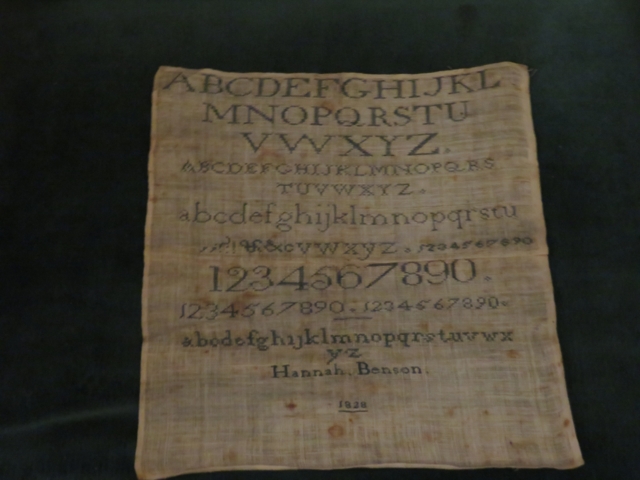 ABCDEFGHIJKL
MNOPQRSTU
VWXYZ.
ABCDEFGHIJKLMNOPQRS
TUVWXYZ.
abcdefghijklmnopqrstu
vwxyz. 1234567890
1234567890.
1234567890. 1234567890.
abcdefghijklmnopqrstuvwx
yz
Hannah. Benson.
1828